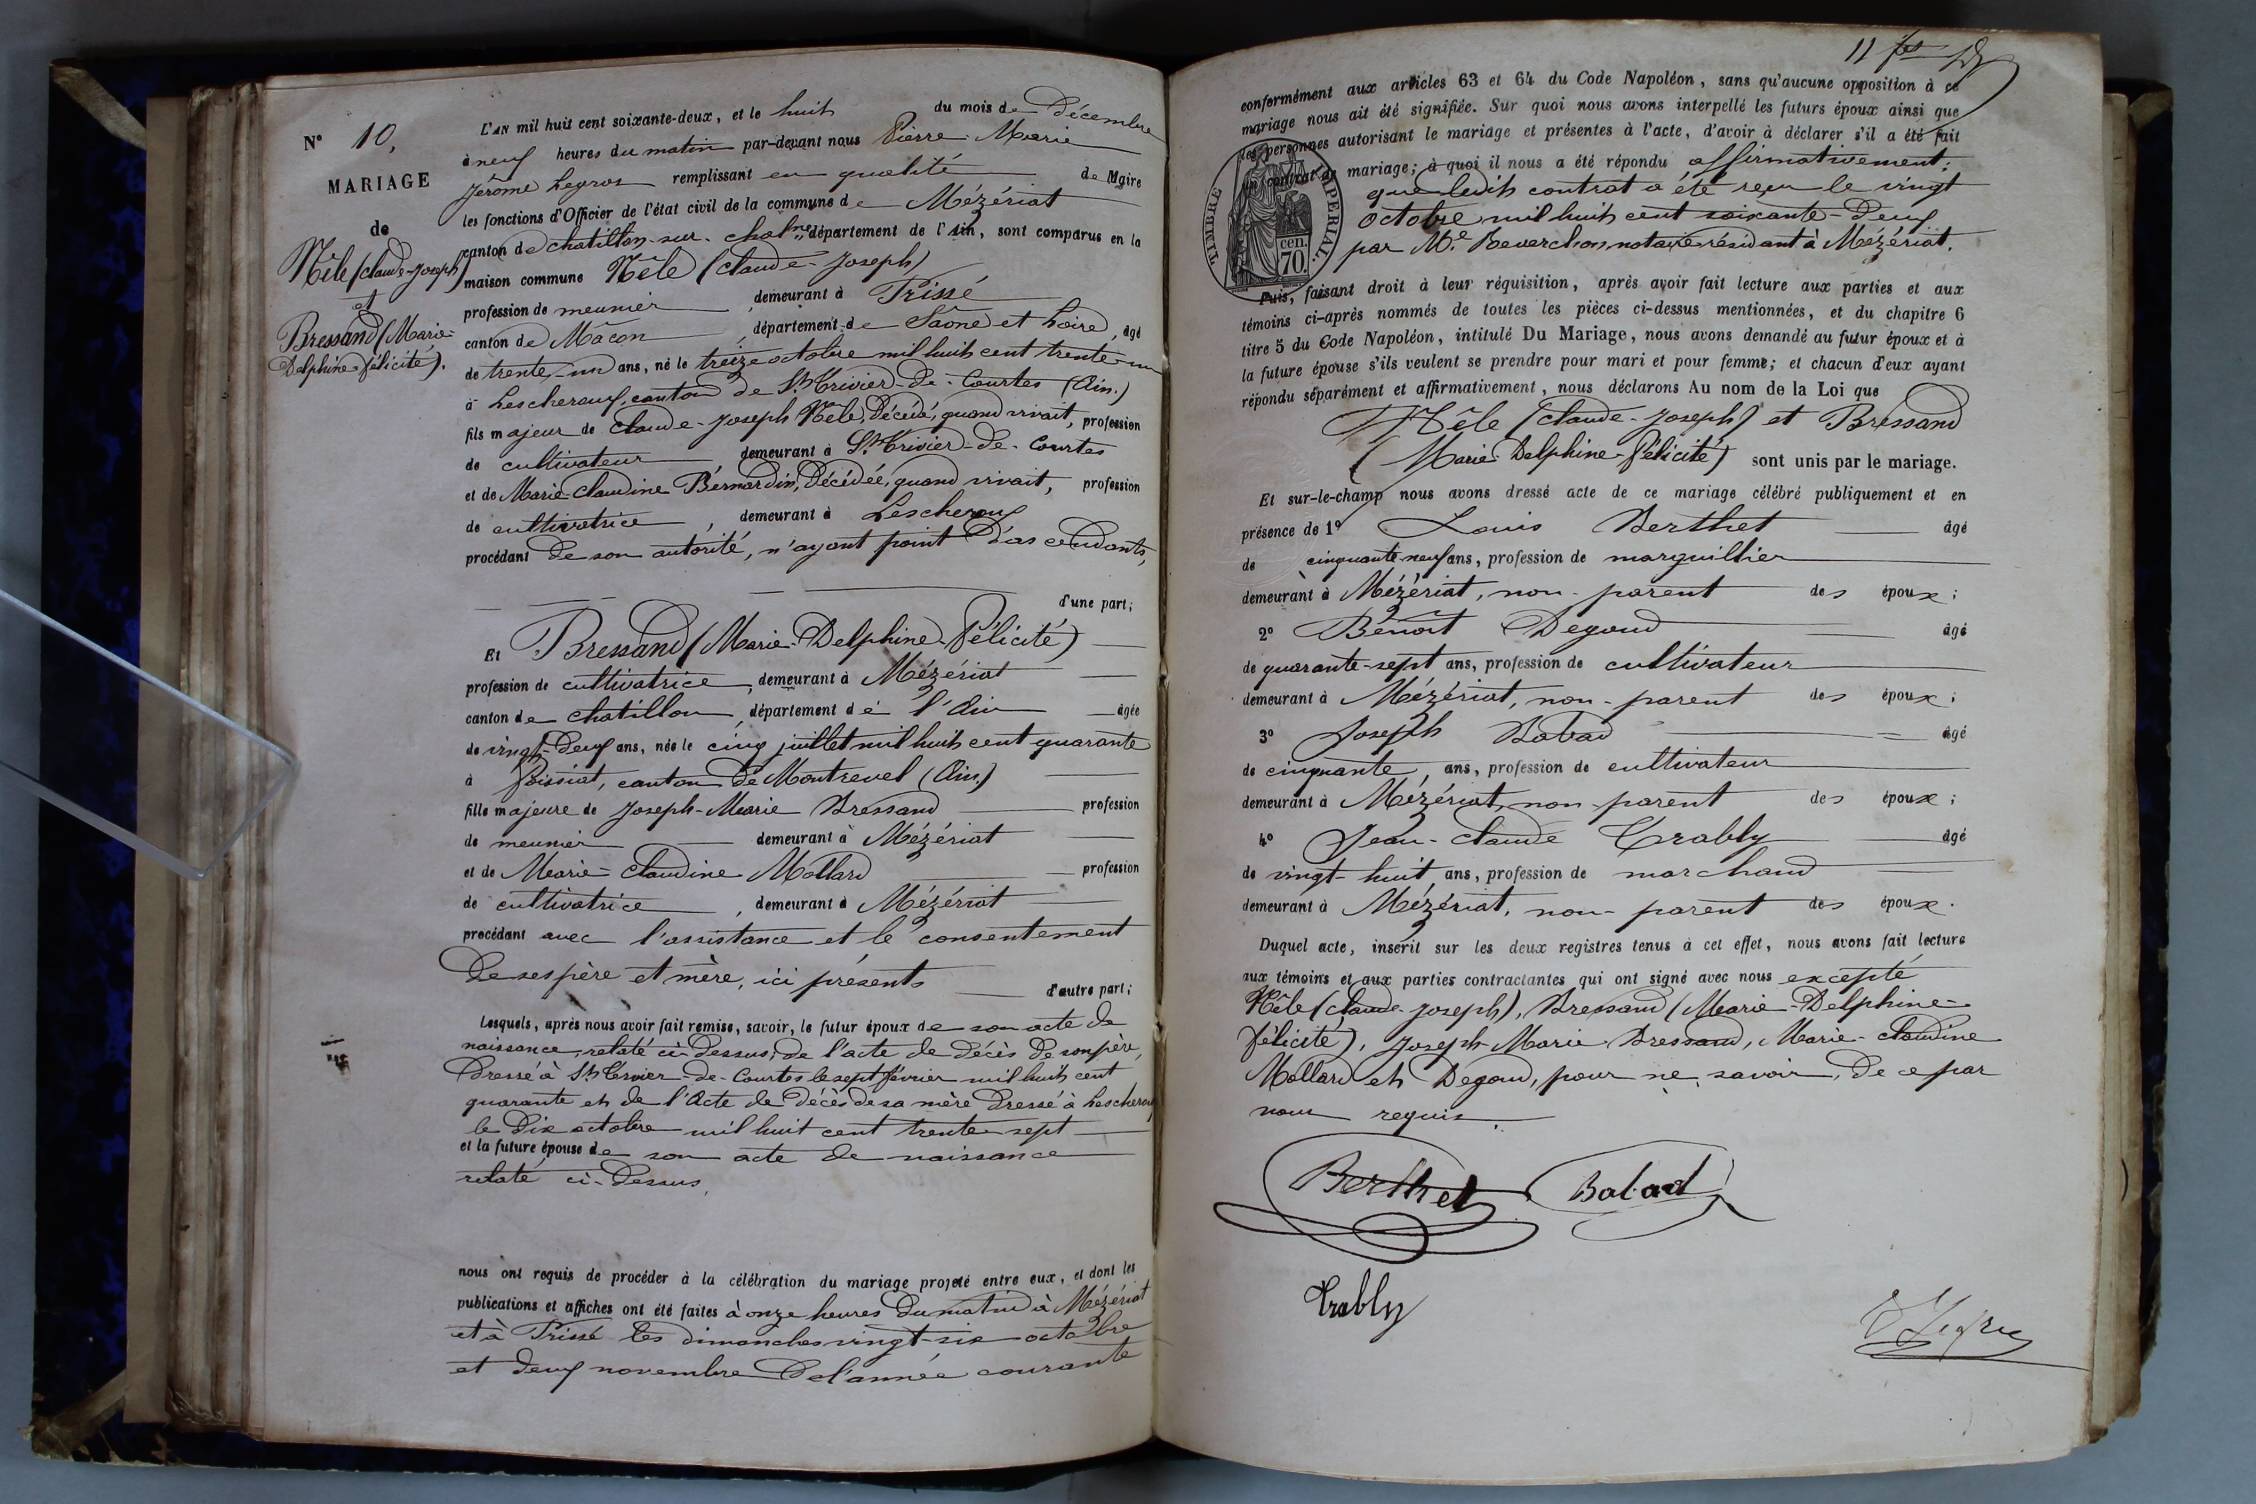 N° 10,
MARIAGE
de
Nêle (Claude-Joseph)
et
Bressand (Marie-
Delphine-félicité).
L'AN mil huit cent soixante-deux, et le huit du mois de Décembre
à neuf heures du matin par-devant nous Pierre Marie
Jérôme Legros remplissant en qualité de Maire
les fonctions d'Officier de l'état civil de la commune de Mézériat
canton de chatillon-sur-chalne, département de l'Ain, sont comparus en la
maison commune Nêle (Claude-Joseph)
profession de meunier, demeurant à Prissé
canton de Mâcon, département de Saône et Loire, âgé
de trente-un ans, né le treize octobre mil huit cent trente-un
à Lescheroux, canton de St Trivier-de-Courtes (Ain.)
fils majeur de Claude-Joseph Nêle, Décédé, quand vivait, profession
de cultivateur demeurant à St Trivier-de-Courtes
et de Marie-Claudine Bernardin, Décédée, quand vivait, profession
de cultivatrice, demeurant à Lescheroux
procédant de son autorité, n'ayant point d'ascendants,
d'une part;
Et Bressand (Marie-Delphine-félicité)
profession de cultivatrice, demeurant à Mézériat
canton de chatillon, département de l'Ain âgée
de vingt-deux ans, née le cinq juillet mil huit cent quarante
à Foissiat, canton de Montrevel (Ain.)
fille majeure de Joseph-Marie Bressand profession
de meunier demeurant à Mézériat
et de Marie-Claudine Mollard profession
de cultivatrice, demeurant à Mézériat
procédant avec l'assistance et le consentement
de ses père et mère, ici présents
d'autre part;
Lesquels, après nous avoir fait remise, savoir, le futur époux de son acte de
naissance, relaté ci-dessus, de l'acte de décès de son père,
Dressé à St Trivier-de-Courtes le sept février mil huit cent
quarante et de l'Acte de Décès de sa mère Dressé à Lescheroux
le dix octobre mil huit cent trente-sept
et la future épouse de son acte de naissance
relaté ci-dessus,
nous ont requis de procéder à la célébration du mariage projeté entre eux, et dont les
publications et affiches ont été faites à onze heures du matin à Mézériat
et à Prissé les dimanches vingt-six octobre
et deux novembre de l'année courante
11
conformément aux articles 63 et 64 du Code Napoléon, sans qu'aucune opposition à ce
mariage nous ait été signifiée. Sur quoi nous avons interpellé les futurs époux ainsi que
les personnes autorisant le mariage et présentes à l'acte, d'avoir à déclarer s'il a été fait
un contrat de mariage; à quoi il nous a été répondu affirmativement;
que ledit contrat a été reçu le vingt
octobre mil huit cent soixante-deux
par Me. Reverchon notaire résidant à Mézériat.
TIMBRE IMPÉRIAL.
cen.
70.
Puis, faisant droit à leur réquisition, après avoir fait lecture aux parties et aux
témoins ci-après nommés de toutes les pièces ci-dessus mentionnées, et du chapitre 6
titre 5 du Code Napoléon, intitulé Du Mariage, nous avons demandé au futur époux et à
la future épouse s'ils veulent se prendre pour mari et pour femme; et chacun d'eux ayant
répondu séparément et affirmativement, nous déclarons Au nom de la Loi que
Nêle (Claude-Joseph) et Bressand
(Marie-Delphine-félicité) sont unis par le mariage.
Et sur-le-champ nous avons dressé acte de ce mariage célébré publiquement et en
présence de 1° Louis Berthet âgé
de cinquante-neuf ans, profession de marguillier
demeurant à Mézériat, non-parent des époux;
2° Benoît Degoud âgé
de quarante-sept ans, profession de cultivateur
demeurant à Mézériat, non-parent des époux;
3° Joseph Babad âgé
de cinquante ans, profession de cultivateur
demeurant à Mézériat, non-parent des époux;
4° Jean-Claude Trably âgé
de vingt-huit ans, profession de marchand
demeurant à Mézériat, non-parent des époux.
Duquel acte, inscrit sur les deux registres tenus à cet effet, nous avons fait lecture
aux témoins et aux parties contractantes qui ont signé avec nous excepté
Nêle (Claude-Joseph), Bressand (Marie-Delphine-
félicité), Joseph-Marie Bressand, Marie-Claudine
Mollard et Degoud, pour ne savoir, de ce par
nous requis.
Berthet Babad
Trably